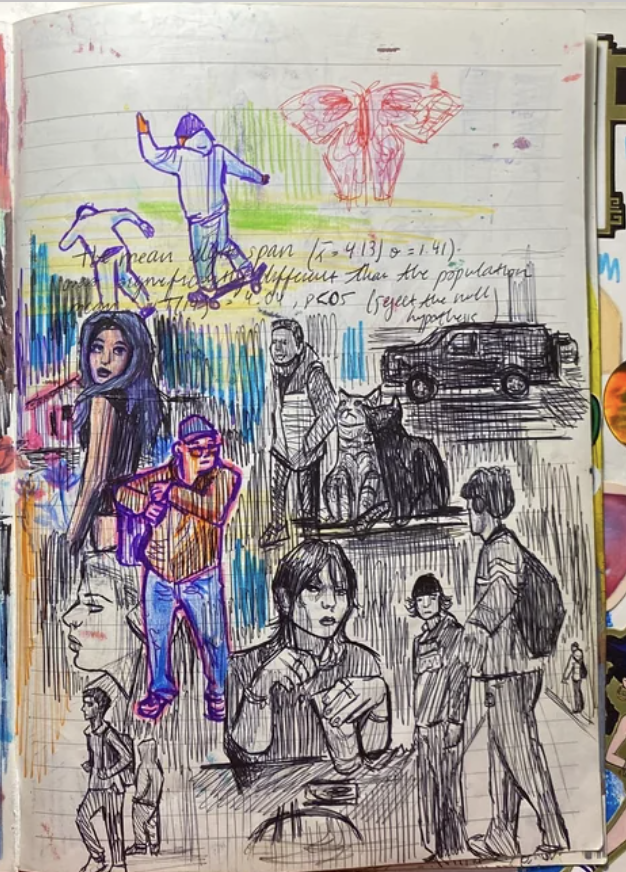 The mean digit span (x̄ = 4.13, σ = 1.41)
was significantly different than the population
mean = 4.04, p<05 (reject the null
hypothesis